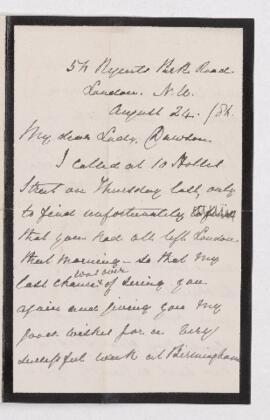 54 Regents Park Road
London. N.W.
August 24. /86.
My dear Lady Dawson.
I called at 10 Holles
Street on Thursday last, only
to find unfortunately
that you had all left London
that morning – so that my
last chance was over of seeing you
again and giving you my
good wishes for a very
successful week at Birmingham